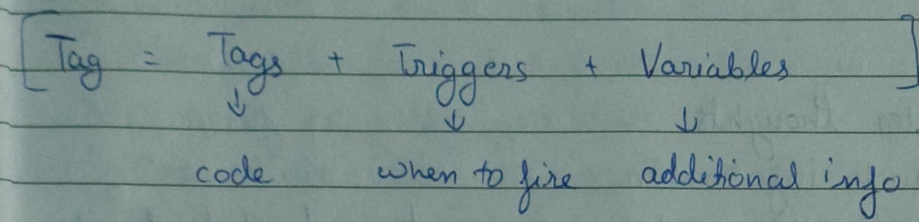 [Tag = Tags + Triggers + Variables]
↓ ↓ ↓
code when to fire additional info